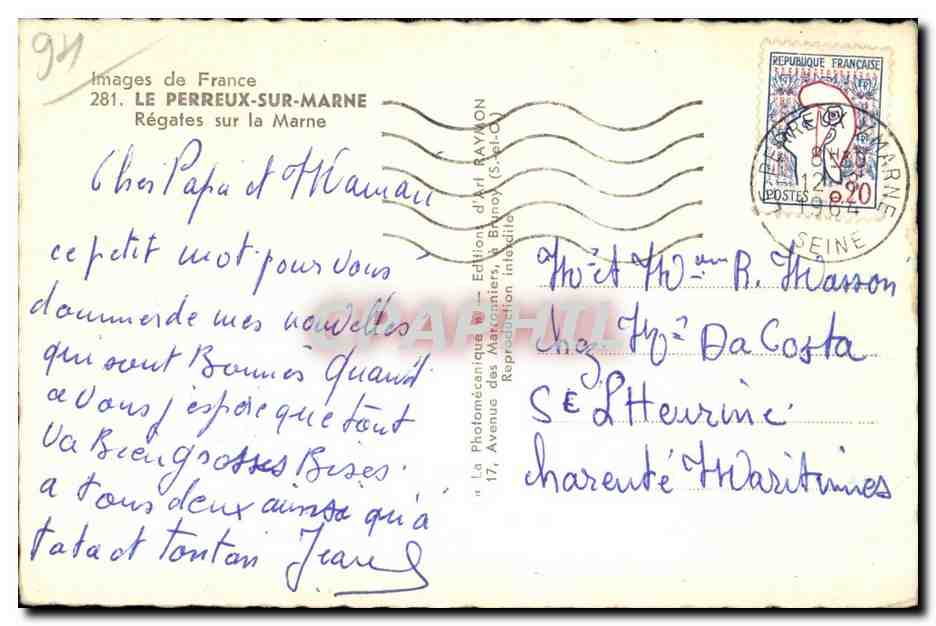 94
Images de France
281. LE PERREUX-SUR-MARNE
Régates sur la Marne
Cher Papa et Maman
ce petit mot pour vous
donner de mes nouvelles
qui sont Bonnes Quand
a Vous j'espere que tout
Va Bien grosses Bises
a tous deux ainsi qu'à
tata et tonton Jean
" La Photomécanique " — Editions d'Art RAYMON
17, Avenue des Marronniers, à Brunoy (S.-et-O.)
Reproduction interdite
CPAPHIL
REPUBLIQUE FRANÇAISE
POSTES 0,20
LE PERREUX S/ MARNE
12 - 9
1964
SEINE
Mr et Mme R. Masson
chez Mr Da Costa
Ste LHeurine
Charente Maritimes